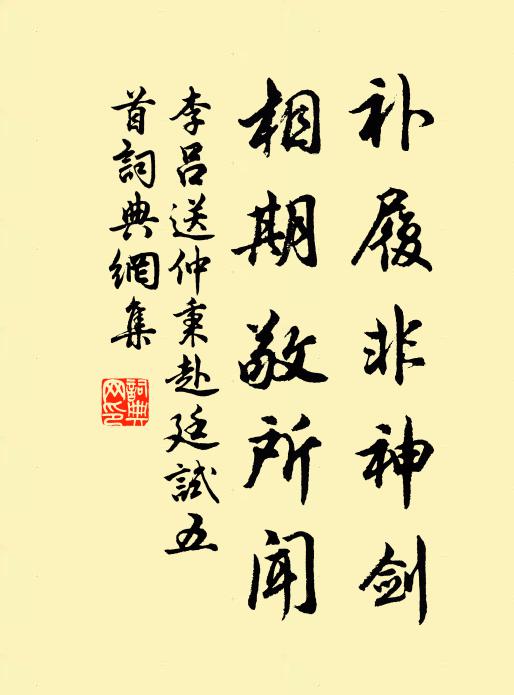 补履非神剑
相期敬所闻
李吕送仲秉赴廷試五
首詞典網集
詞典
网印